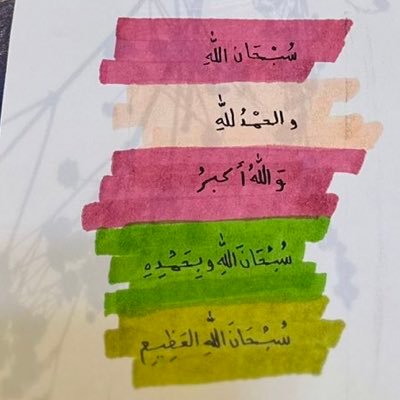 سُبْحَانَ اللّٰهِ
و الحَمْدُ للّٰهِ
وَ اللّٰهُ أَكبرُ
سُبْحَانَ اللّٰهِ وبِحَمْدِهِ
سُبْحَانَ اللّٰهِ العَظِيمِ